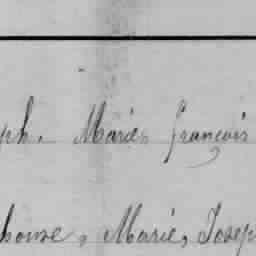 ph. Marie, françois
house, Marie, Josep